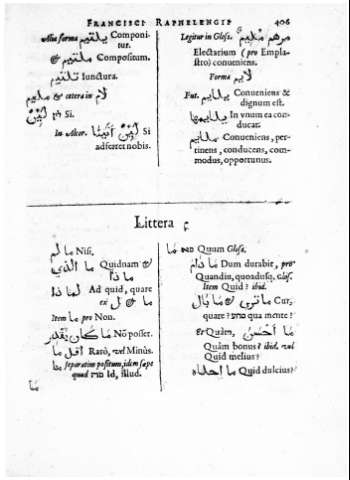 FRANCISCI RAPHELENGII 406
Alia forma يلتئم Componi
tur.
& ملتئم Compositum.
تلتئم Iunctura.
لام & cetera in
לין Si.
In Alcor. Si
adferret nobis.
Legitur in Gloss. مرهم ملئم
Electarium (pro Empla-
stro) conueniens.
Forma لايم
Fut. يلايم Conueniens &
dignum est.
يلايمها In vnum ea con-
ducat.
ملايم Conueniens, per-
tinens, conducens, com-
modus, opportunus.
Littera م
ما لم Nisi.
ما الذي Quidnam &
ما ذا
لما ذا Ad quid, quare
ex ل & ما
Item ما pro Non.
ما كان يقدر Nō posset.
اقل ما Rarò, vel Minùs.
ما Separatim positum, idem sæpe
quod Id, illud.
ما
ما Quum Gloss.
ما دام Dum durabit, pro
Quandiu, quoadusq, Glos.
Item Quid? ibid.
ما ترى & ما بال Cur,
quare? qua mente?
& Quàm, ما احسن
Quàm bonus? ibid. vel
Quid melius?
ما احلاه Quid dulcius?